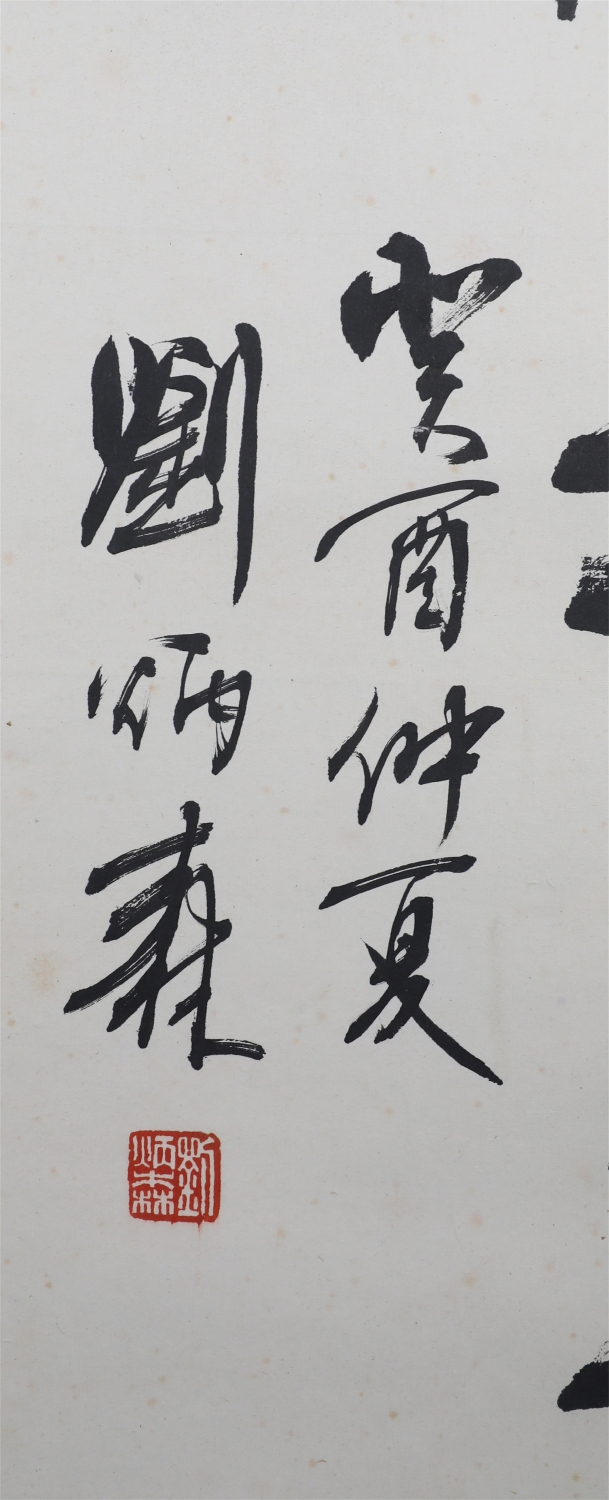 癸酉仲夏
劉炳森
劉
炳森